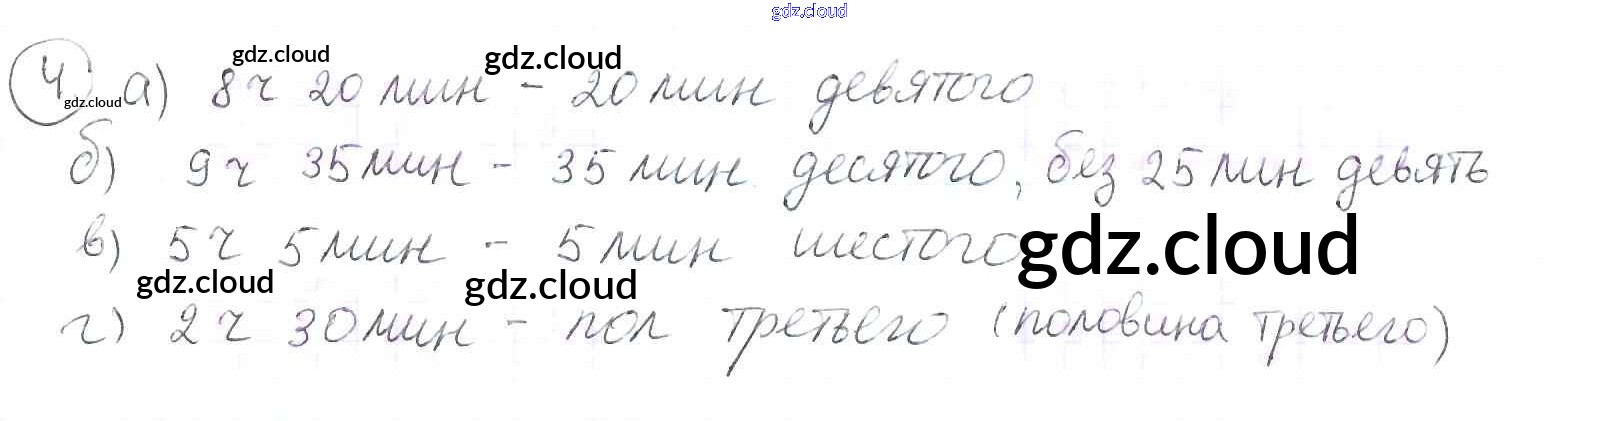 gdz.cloud
gdz.cloud gdz.cloud
4 gdz.cloud а) 8 ч 20 мин – 20 мин девятого
б) 9 ч 35 мин – 35 мин десятого, без 25 мин девять
в) 5 ч 5 мин – 5 мин шестого gdz.cloud
gdz.cloud gdz.cloud
г) 2 ч 30 мин – пол третьего (половина третьего)